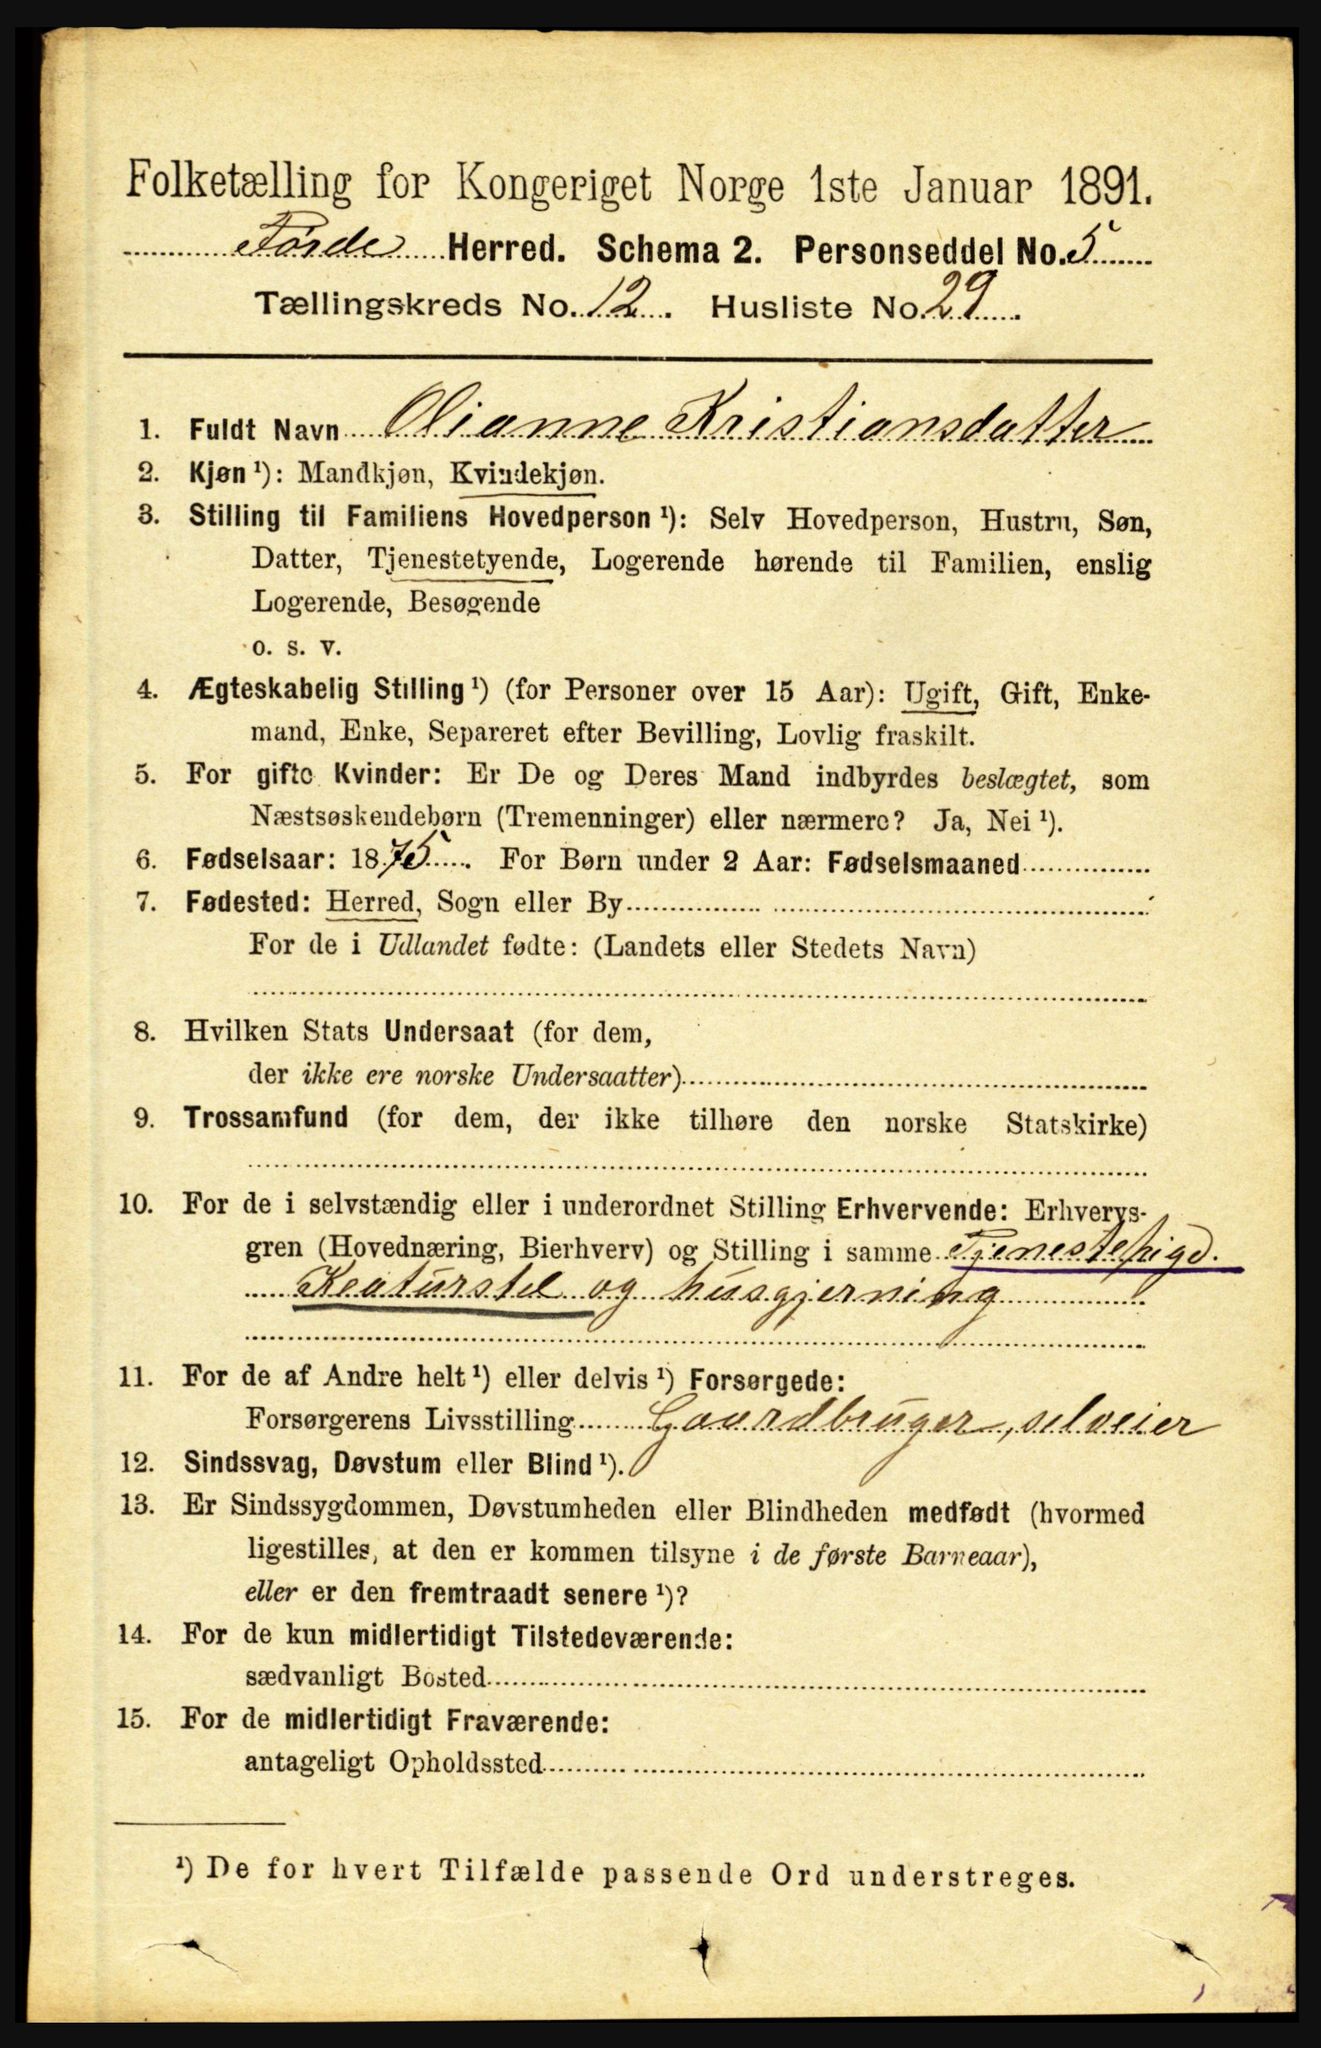 Folketælling for Kongeriget Norge 1ste Januar 1891.
Førde Herred. Schema 2. Personseddel No. 5
Tællingskreds No. 12. Husliste No. 29.
1. Fuldt Navn Olianne Kristiansdatter
2. Kjøn ¹): Mandkjøn, Kvindekjøn.
3. Stilling til Familiens Hovedperson ¹): Selv Hovedperson, Hustru, Søn,
Datter, Tjenestetyende, Logerende hørende til Familien, enslig
Logerende, Besøgende
o. s. v.
4. Ægteskabelig Stilling ¹) (for Personer over 15 Aar): Ugift, Gift, Enke-
mand, Enke, Separeret efter Bevilling, Lovlig fraskilt.
5. For gifte Kvinder: Er De og Deres Mand indbyrdes beslægtet, som
Næstsøskendebørn (Tremenninger) eller nærmere? Ja, Nei ¹).
6. Fødselsaar: 1875. For Børn under 2 Aar: Fødselsmaaned
7. Fødested: Herred, Sogn eller By
For de i Udlandet fødte: (Landets eller Stedets Navn)
8. Hvilken Stats Undersaat (for dem,
der ikke ere norske Undersaatter)
9. Trossamfund (for dem, der ikke tilhøre den norske Statskirke)
10. For de i selvstændig eller i underordnet Stilling Erhvervende: Erhvervs-
gren (Hovednæring, Bierhverv) og Stilling i samme Tjenestepige.
Kreaturstel og husgjerning
11. For de af Andre helt ¹) eller delvis ¹) Forsørgede:
Forsørgerens Livsstilling Gaardbruger, selveier
12. Sindssvag, Døvstum eller Blind ¹).
13. Er Sindssygdommen, Døvstumheden eller Blindheden medfødt (hvormed
ligestilles, at den er kommen tilsyne i de første Barneaar),
eller er den fremtraadt senere ¹)?
14. For de kun midlertidigt Tilstedeværende:
sædvanligt Bosted
15. For de midlertidigt Fraværende:
antageligt Opholdssted
¹) De for hvert Tilfælde passende Ord understreges.